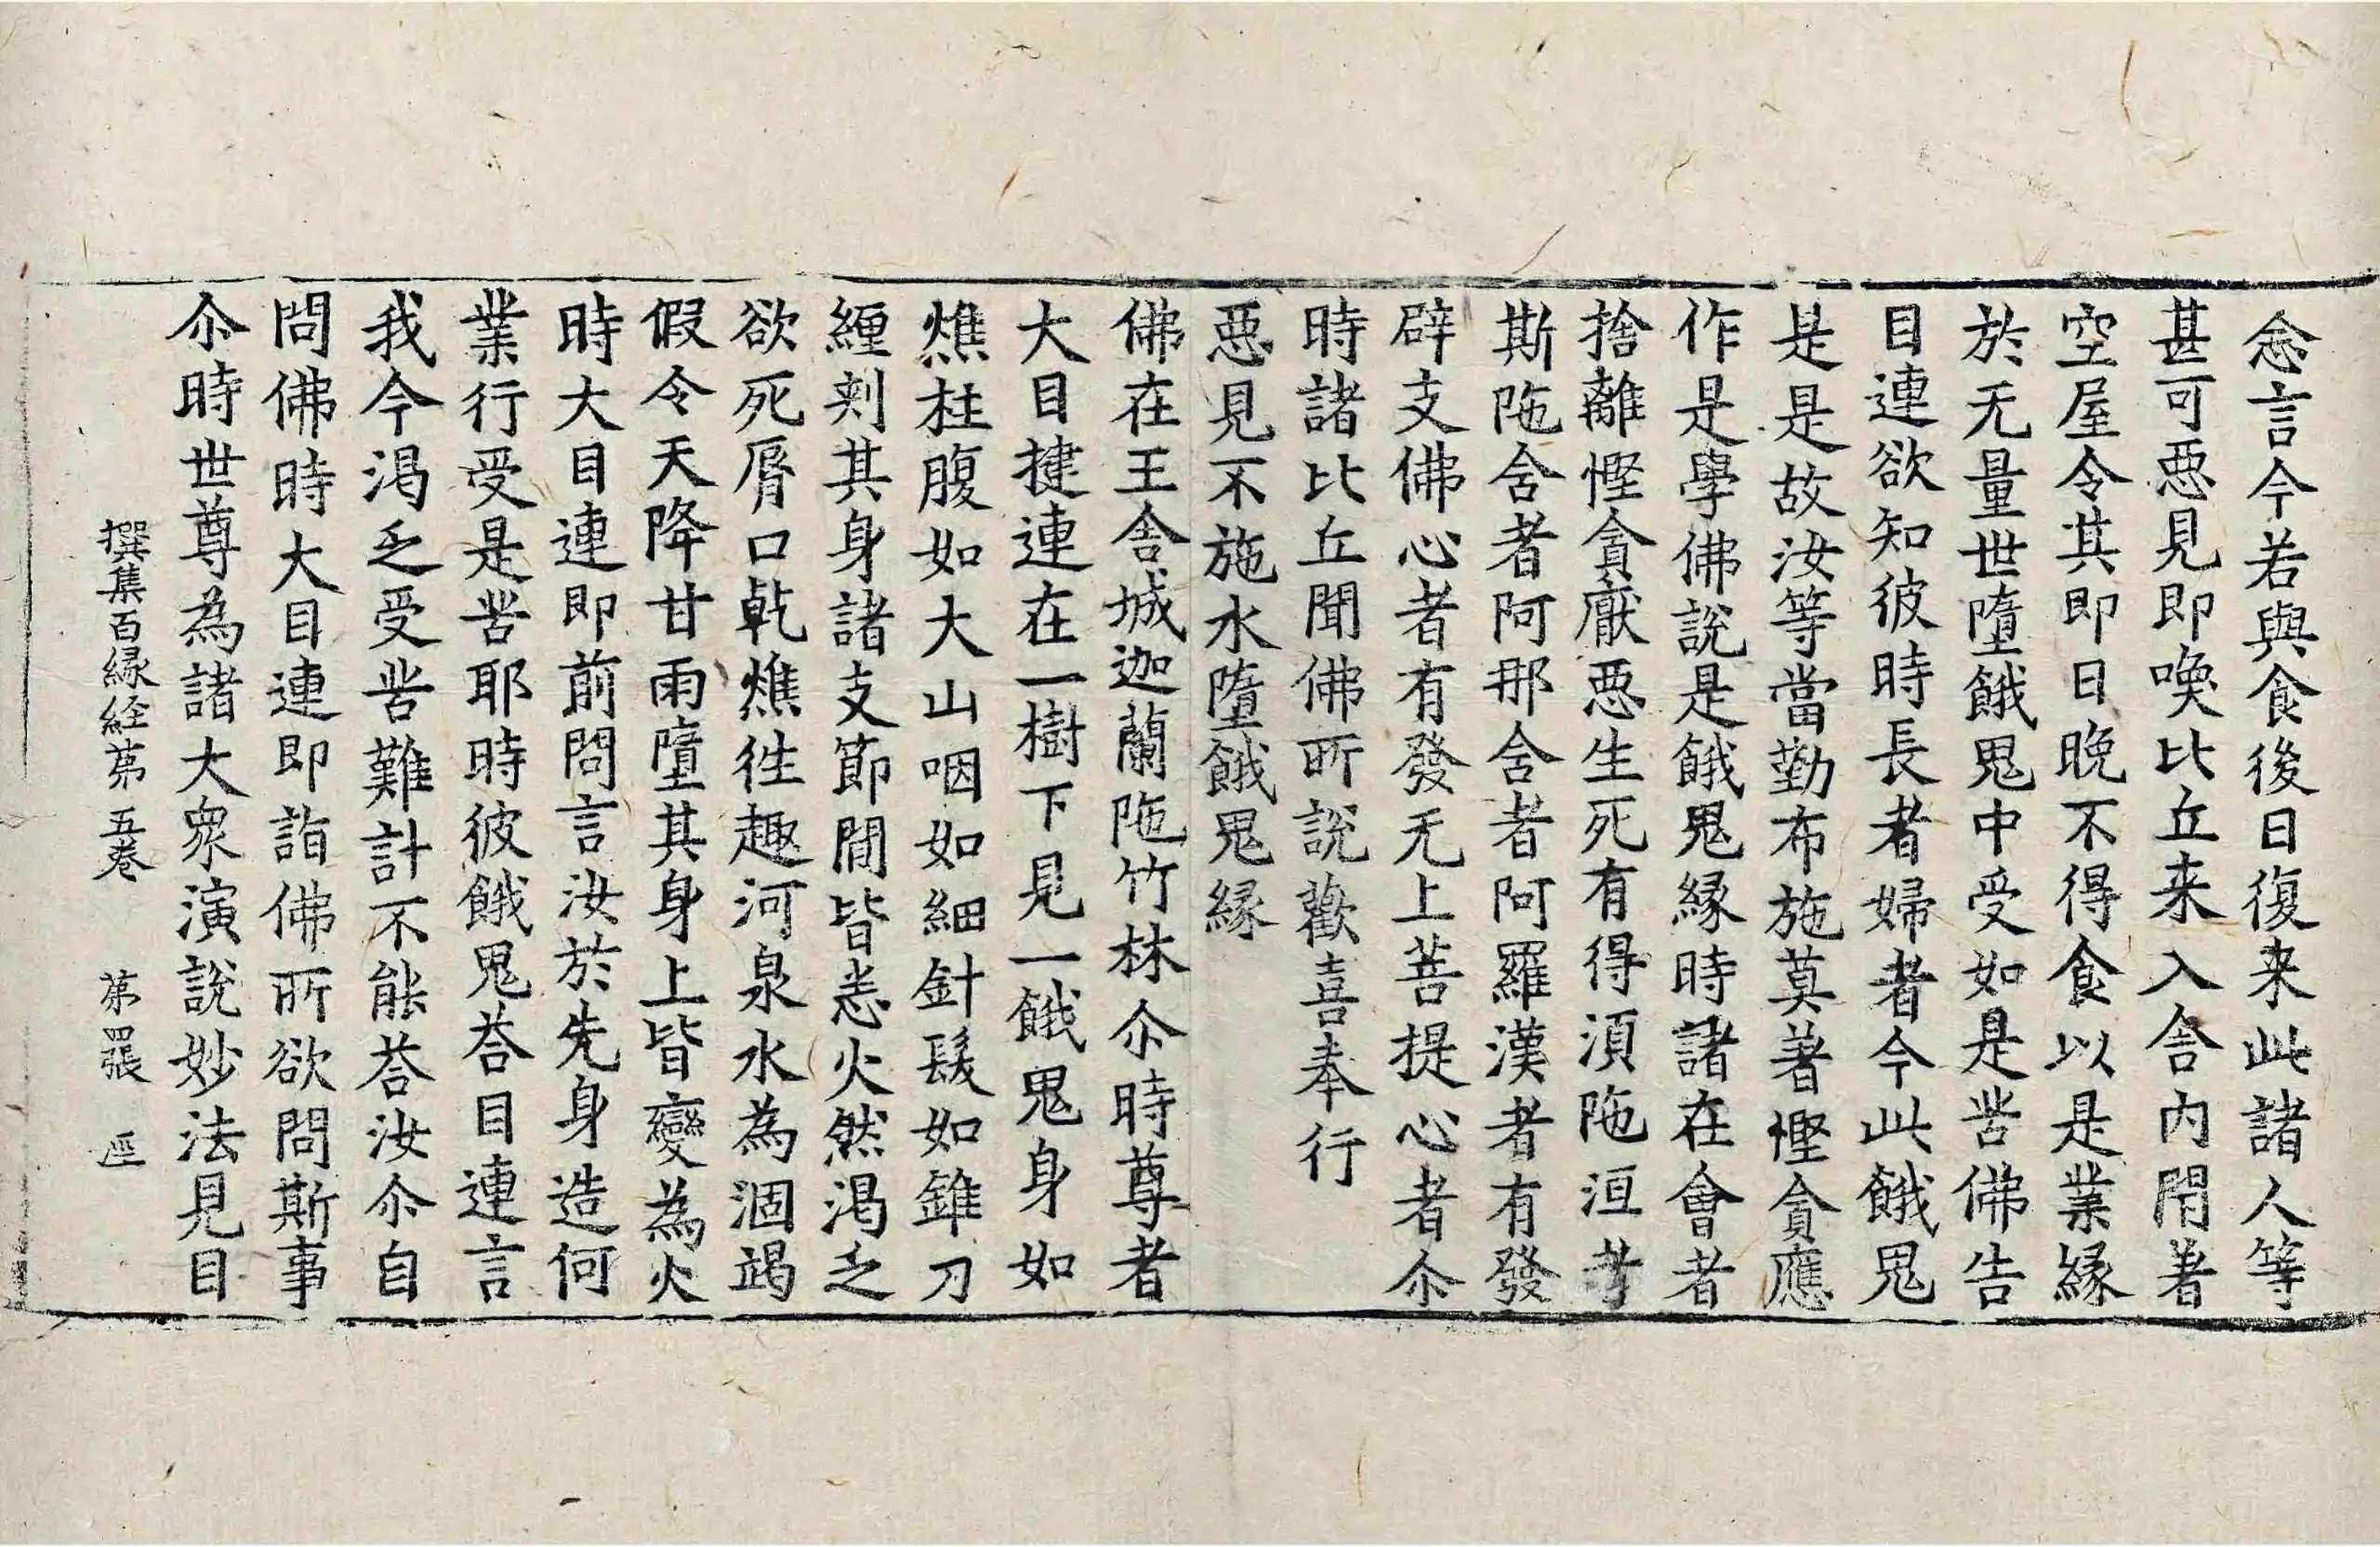 念言今若與食後日復来此諸人等
甚可惡見即喚比丘来入舍内閇著
空屋令其即日晚不得食以是業緣
於无量世墮餓鬼中受如是苦佛告
目連欲知彼時長者婦者今此餓鬼
是是故汝等當勤布施莫著慳貪應
作是學佛說是餓鬼緣時諸在會者
捨離慳貪厭惡生死有得湏陁洹者
斯陁含者阿那含者阿羅漢者有發
辟支佛心者有發无上菩提心者尒
時諸比丘聞佛所說歡喜奉行
惡見不施水墮餓鬼緣
佛在王舍城迦蘭陁竹林尒時尊者
大目揵連在一樹下見一餓鬼身如
燋柱腹如大山咽如細針髮如錐刀
纏刾其身諸支節間皆悉火然渴乏
欲死脣口乾燋往趣河泉水為涸竭
假令天降甘雨墮其身上皆變為火
時大目連即前問言汝於先身造何
業行受是苦耶時彼餓鬼荅目連言
我今渴乏受苦難計不能荅汝尒自
問佛時大目連即詣佛所欲問斯事
尒時世尊為諸大衆演說妙法見目
撰集百緣経苐五卷 苐四張 逕